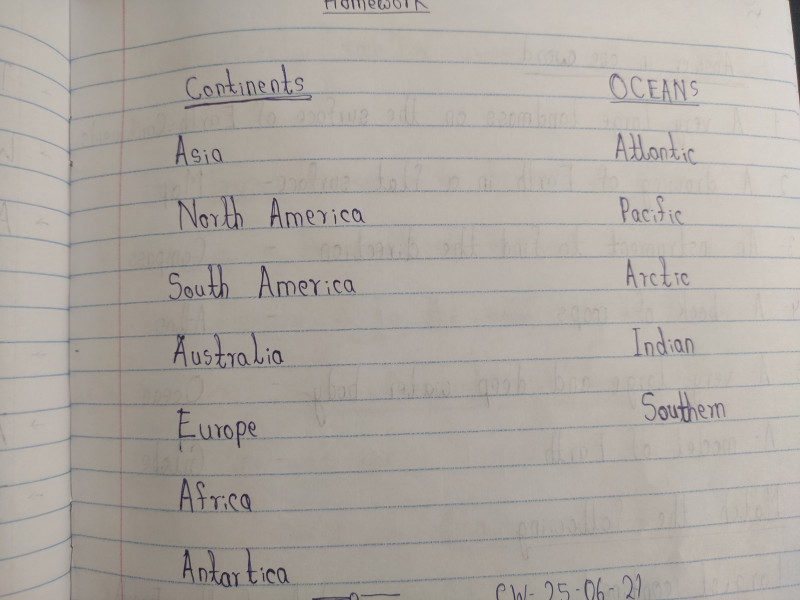 Homework
Continents OCEANS
Asia Atlantic
North America Pacific
South America Arctic
Australia Indian
Europe Southern
Africa
Antartica
CW-25-06-21